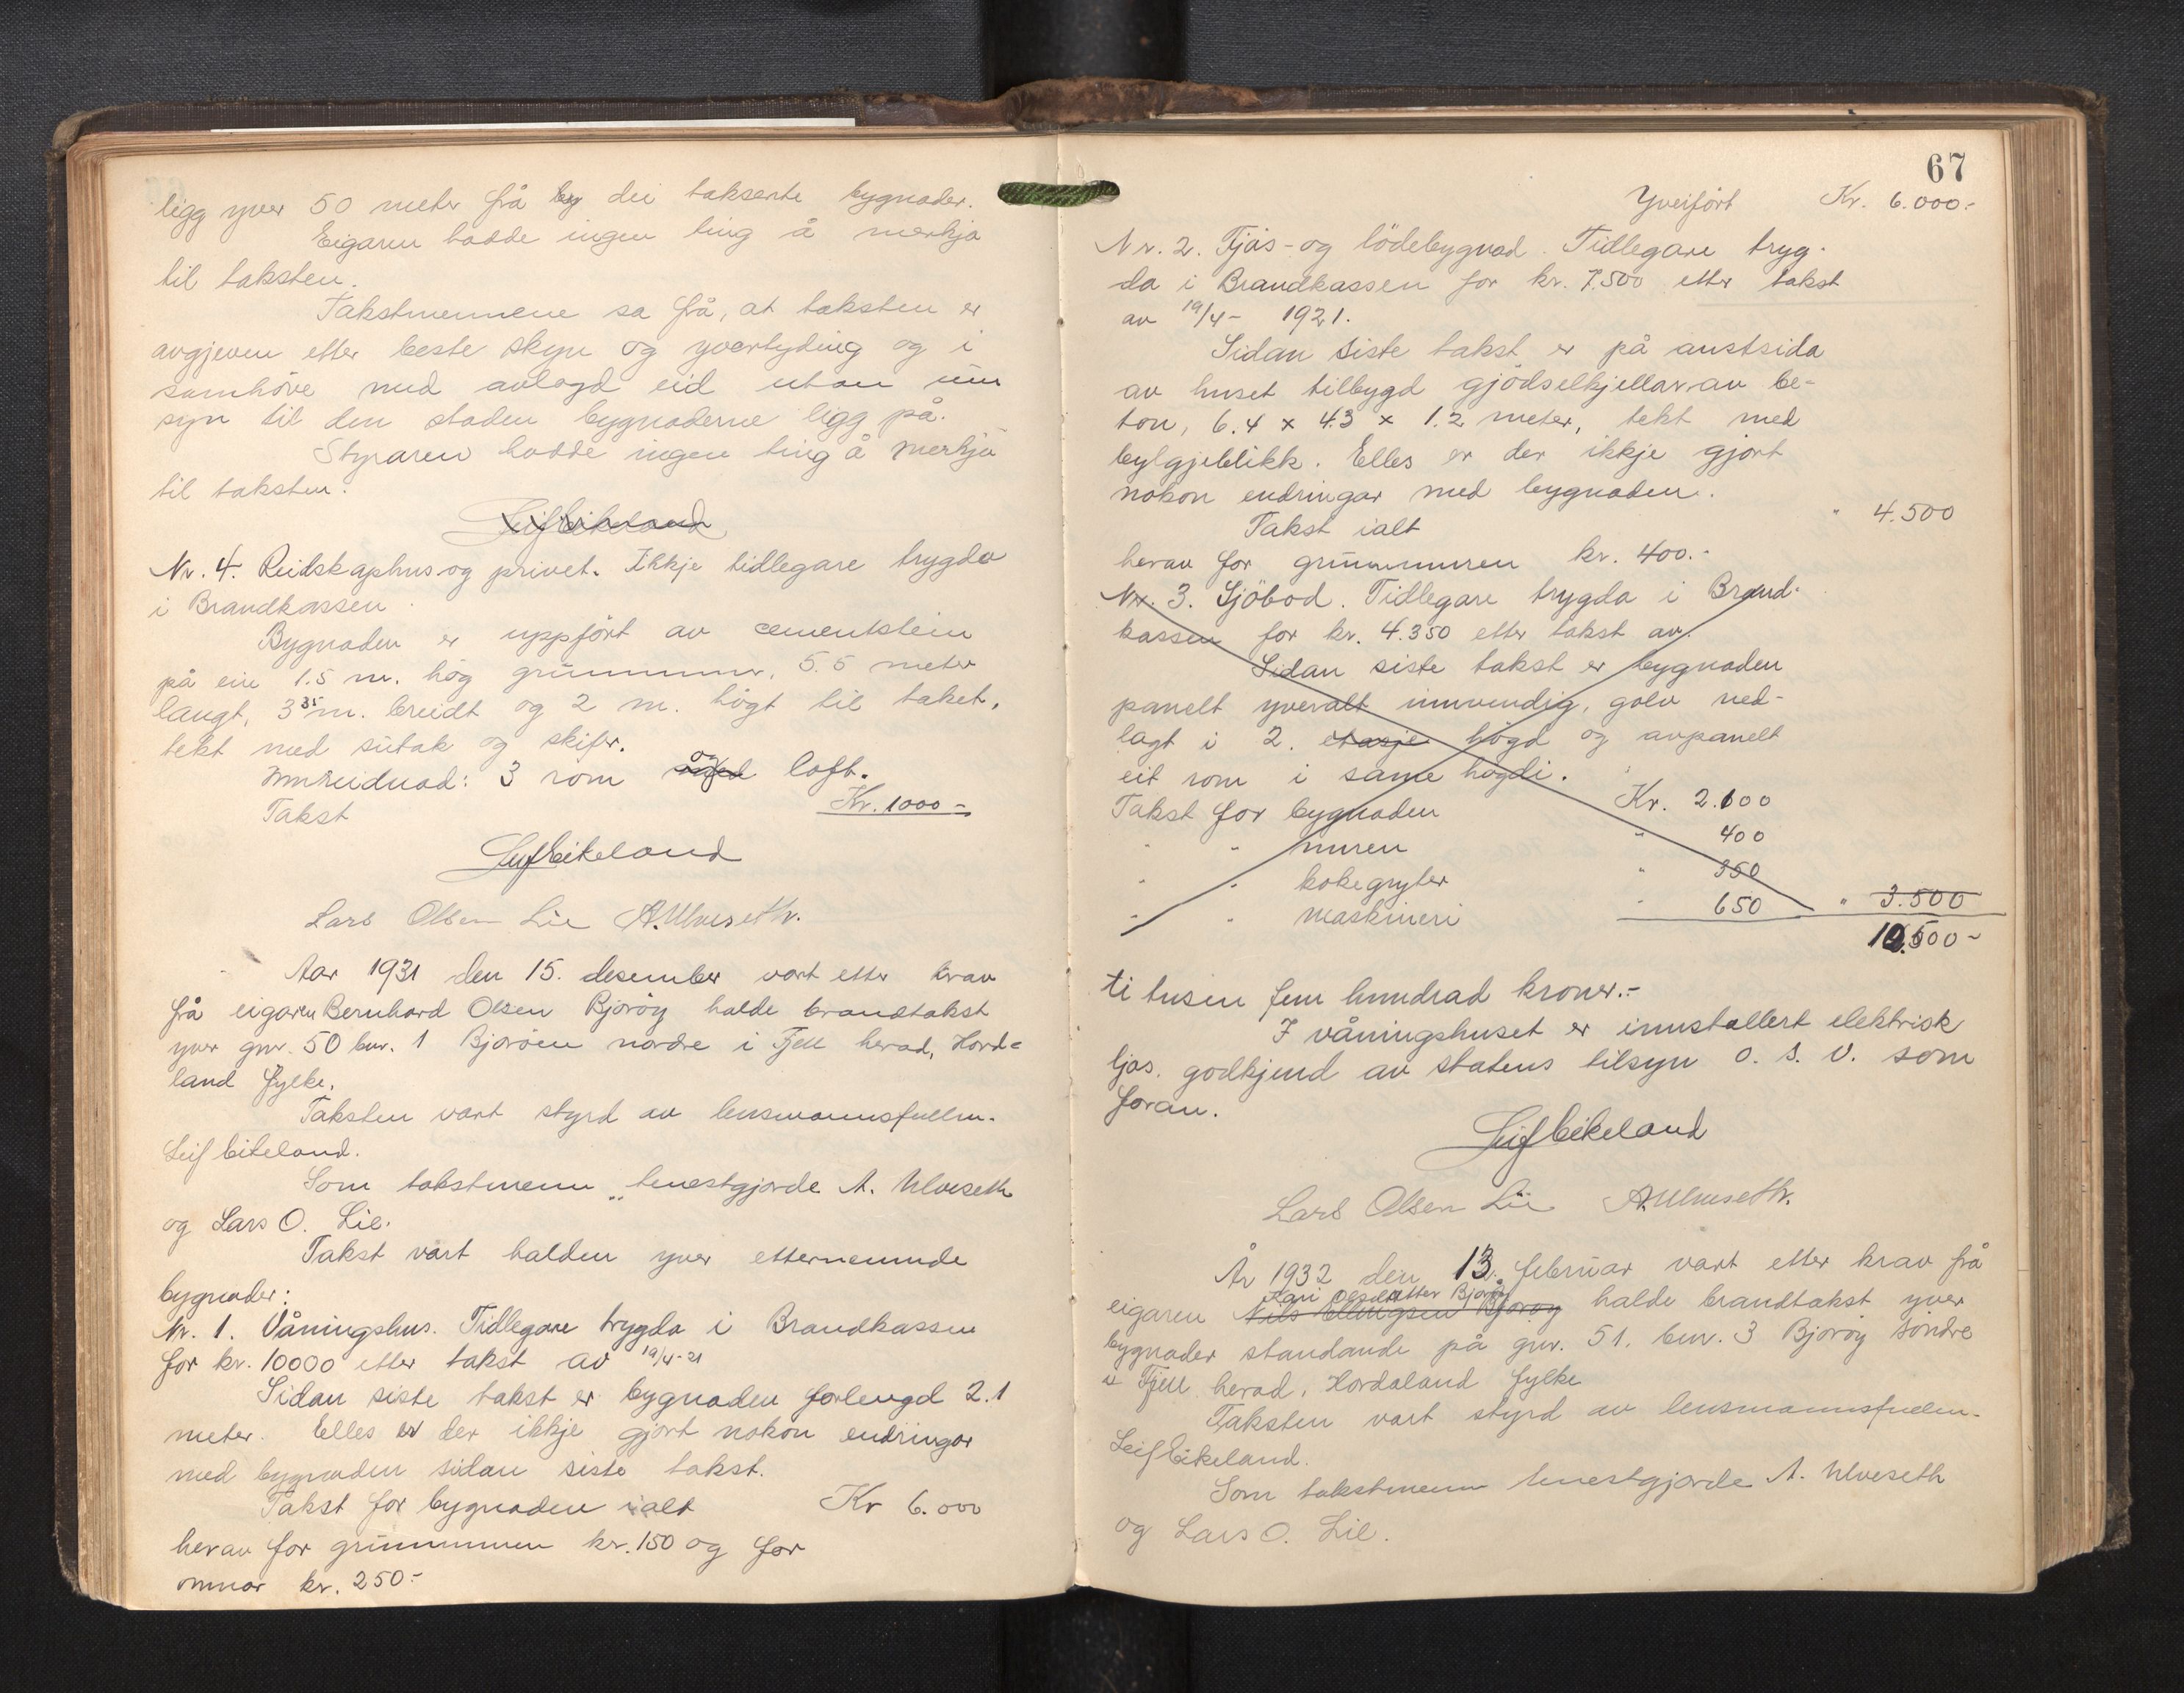 ligg yver 50 meter frå by dei takserte bygnader.
Eigaren hadde ingen ting å merkja
til taksten.
Takstmennene sa frå, at taksten er
avgjeven etter beste skyn og yvertyding og i
samhöve med avlagd eid utan um
syn til den staden bygnaderne ligg på.
Styraren hadde ingen ting å merkja
til taksten.
Leif Eikeland
Nr. 4. Reidskaphus og privet. Ikkje tidlegare trygda
i Brandkassen.
Bygnaden er uppfört av cementstein
på ein 1.5 m. hög grunnmur, 5.5 meter
langt, 3³⁵ m. breidt og 2 m. högt til taket,
tekt med sutak og skifer.
Innreidnad: 3 rom og loft.
Takst Kr. 1000 -
Leif Eikeland
Lars Olsen Lie A. Ulveseth.
Aar 1931 den 15. desember vart etter krav
frå eigaren Bernhard Olsen Bjoröy halde brandtakst
yver gnr. 50 bnr. 1 Bjoröen nordre i Fjell herad, Horda=
land fylke.
Taksten vart styrd av lensmannsfullm.
Leif Eikeland.
Som takstmenn tenestgjorde A. Ulveseth
og Lars O. Lie.
Takst vart halden yver etternemnde
bygnader:
Nr. 1. Våningshus. Tidlegare trygda i Brandkassen
for kr. 10000 etter takst av 19/4-21
Sidan siste takst er bygnaden forlengd 2.1
meter. Elles er der ikkje gjort nokon endringar
med bygnaden sidan siste takst.
Takst for bygnaden ialt Kr 6.000
herav for grunnmuren kr. 150 og for
omnar kr. 250.-
67
Yverfört Kr. 6.000.-
Nr. 2. Fjös- og lödebygnad. Tidlegare tryg-
da i Brandkassen for kr. 7.500 etter takst
av 19/4 - 1921.
Sidan siste takst er på austsida
av huset tilbygd gjödselkjellar av be-
ton, 6.4 x 4.3 x 1.2 meter, tekt med
bylgjeblikk. Elles er der ikkje gjort
nokon endringar med bygnaden.
Takst ialt " 4.500
herav for grunnmuren kr. 400.-
Nr. 3. Sjöbod. Tidlegare trygda i Brand-
kassen for kr. 4.350 etter takst av.
Sidan siste takst er bygnaden
panelt yveralt innvendig, golv ned-
lagt i 2. etasje högd og avpanelt
eit rom i same högdi.
Takst for bygnaden Kr. 2.100
" " muren " 400
" " kokegryter " 350
" " maskineri " 650 " 3.500
10.500 -
ti tusen fem hundrad kroner.-
I våningshuset er innstallert elektrisk
ljos, godkjend av statens tilsyn o. s. v. som
foran.
Leif Eikeland
Lars Olsen Lie A. Ulveseth.
År 1932 den 13. februar vart etter krav frå
Kari Olsdatter Bjoröy
eigaren Nils Ellingsen Bjoröy halde brandtakst yver
bygnader standande på gnr. 51. bnr. 3 Bjoröy söndre
i Fjell herad, Hordaland fylke
Taksten vart styrd av lensmannsfullm.
Leif Eikeland.
Som takstmenn tenestgjorde A. Ulveseth
og Lars O. Lie.